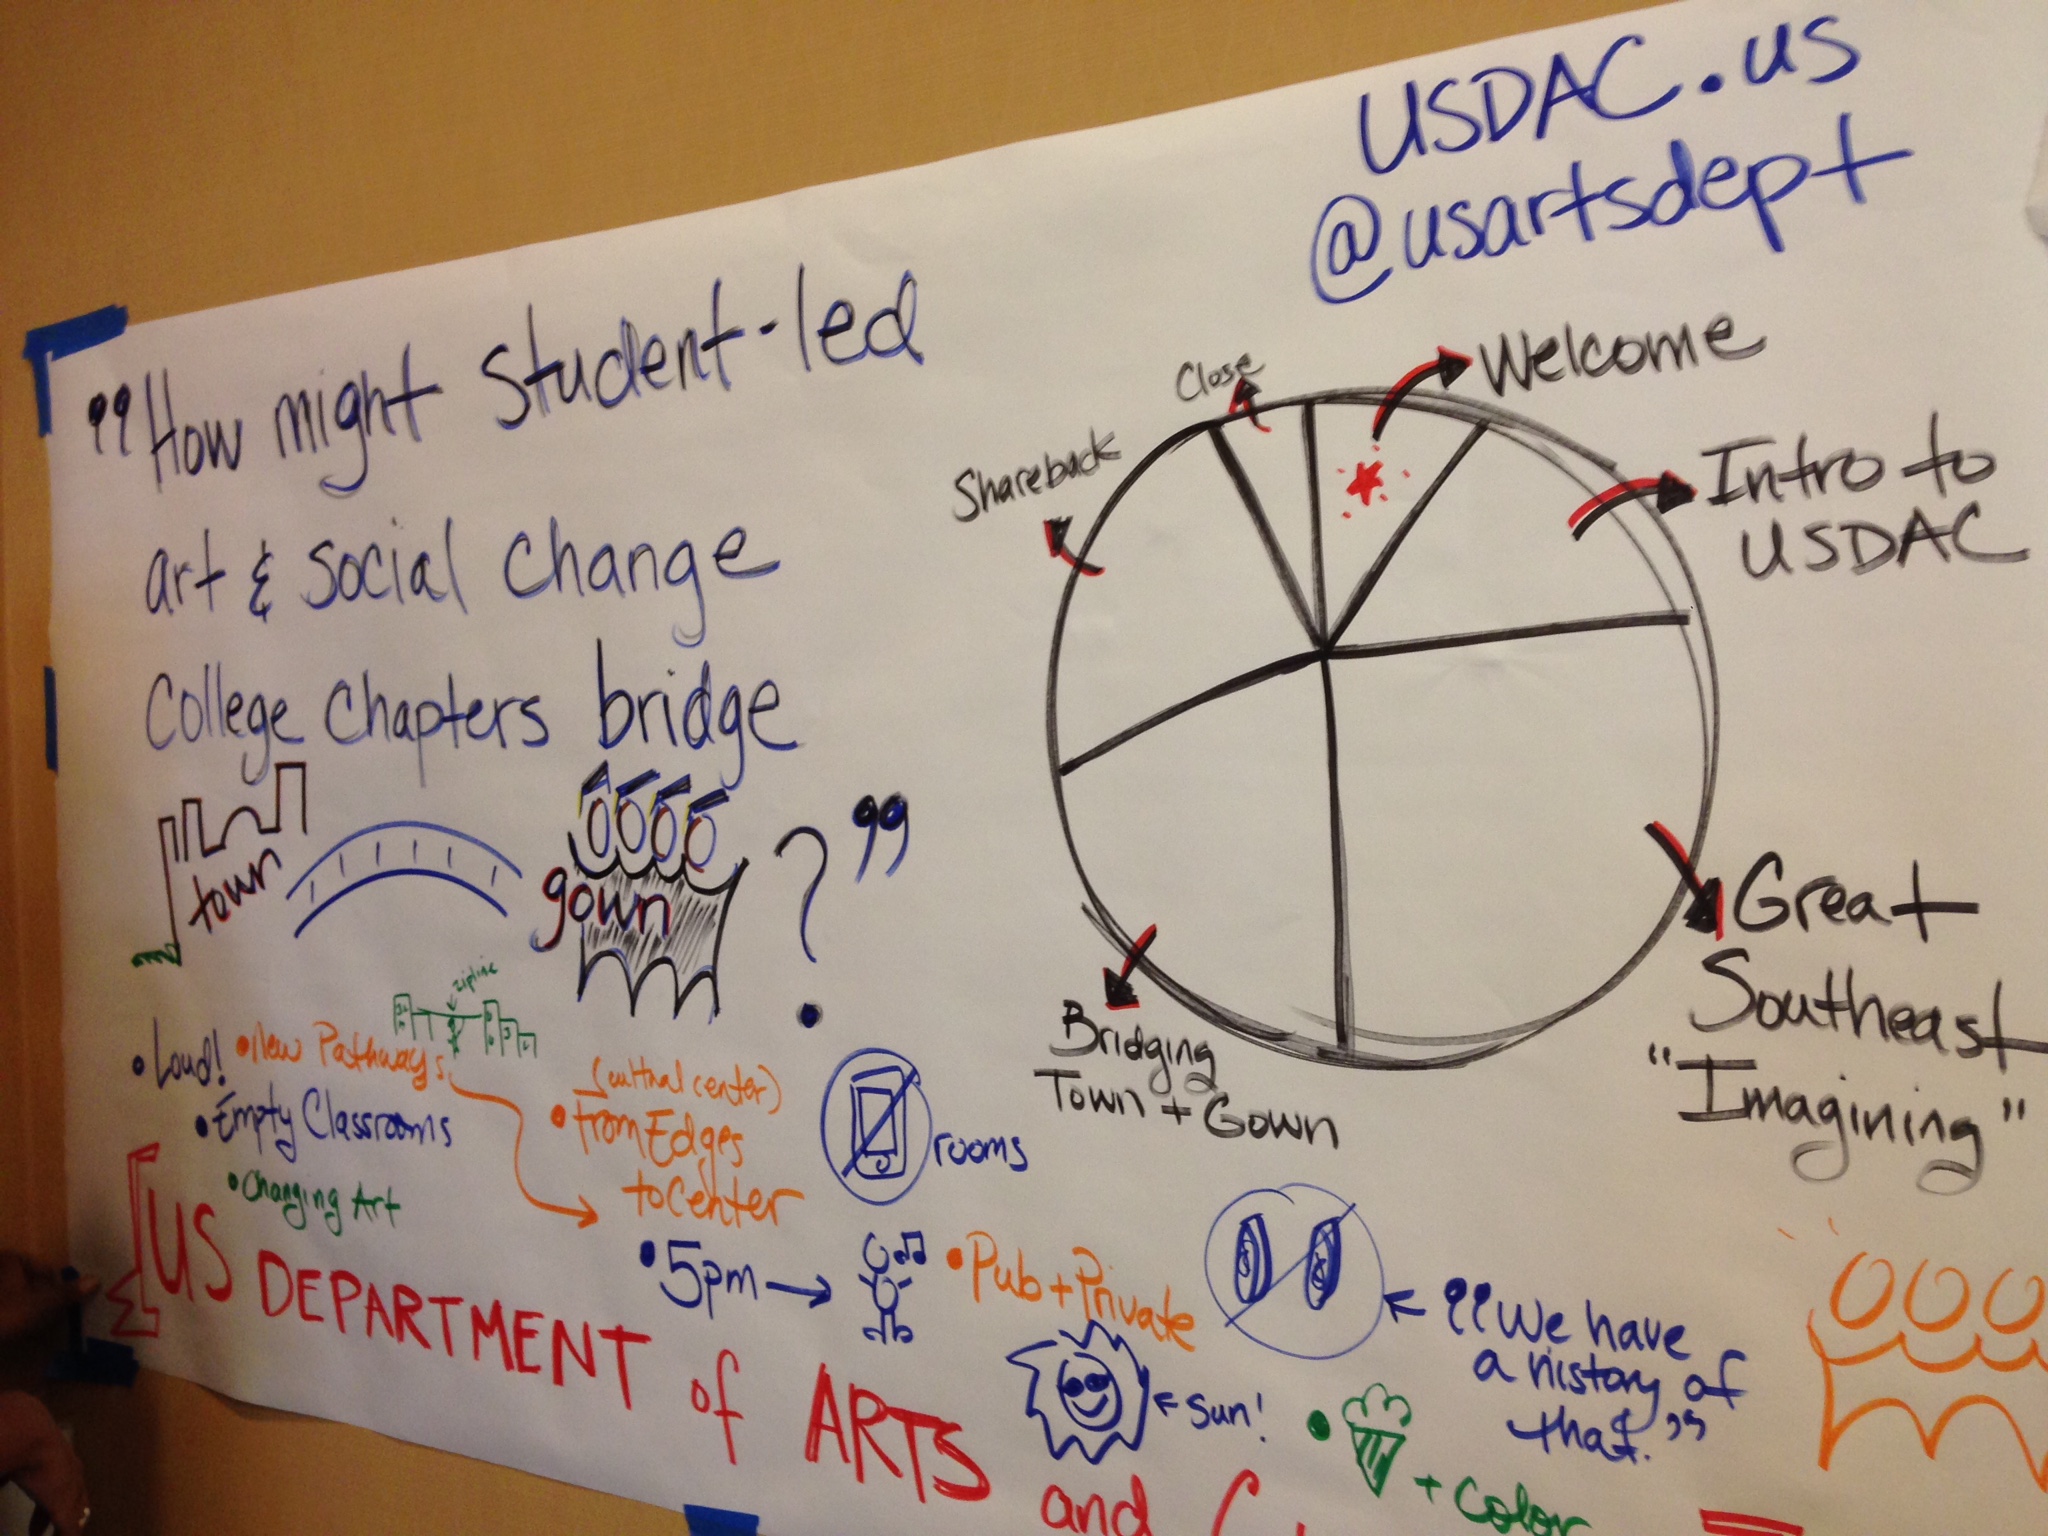 USDAC.us
@usartsdept
"How might Student-led
art & social change
College Chapters bridge
town
gown
?"
Close
Welcome
Shareback
Intro to
USDAC
Great
Southeast
"Imagining"
Bridging
Town + Gown
zipline
• Loud!
• New Pathways
• Empty Classrooms
• Changing Art
(cultural center)
• From Edges
to Center
rooms
• 5pm →
• Pub + Private
← "We have
a history of
that."
← Sun!
+ Color
US DEPARTMENT of ARTS and